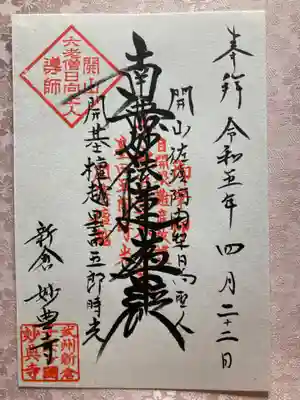 奉拝 令和五年 四月二十二日
開山佐渡阿闍梨日向上人
南無妙法蓮華経
開基檀越墨田五郎時光
新倉 妙典寺
開山
六老僧日向上人
導師
武州新倉
妙典寺